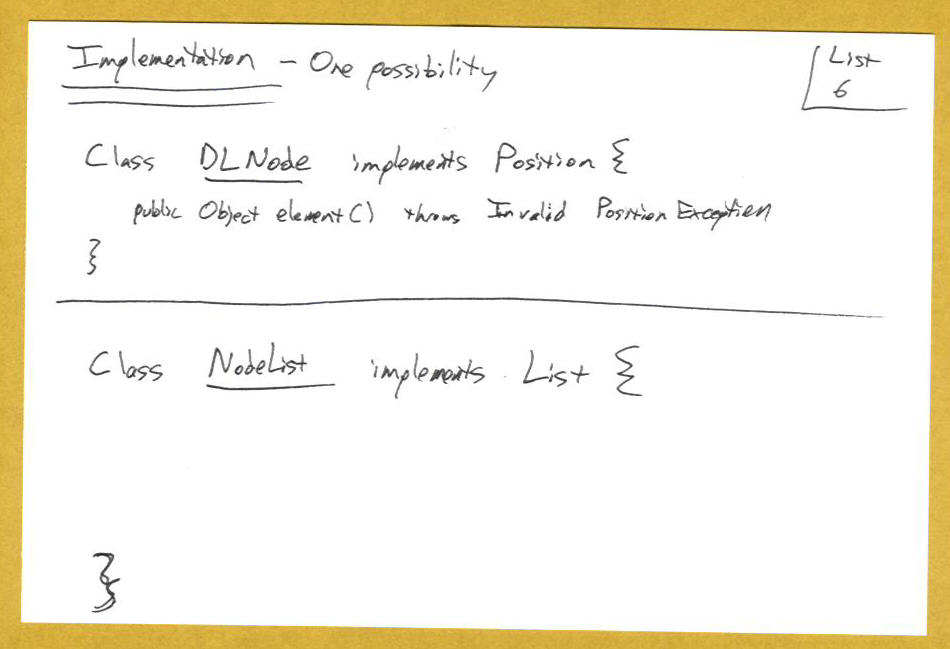 Implementation - One possibility
List
6
Class DLNode implements Position {
public Object element() throws Invalid Position Exception
}
Class NodeList implements List {
}